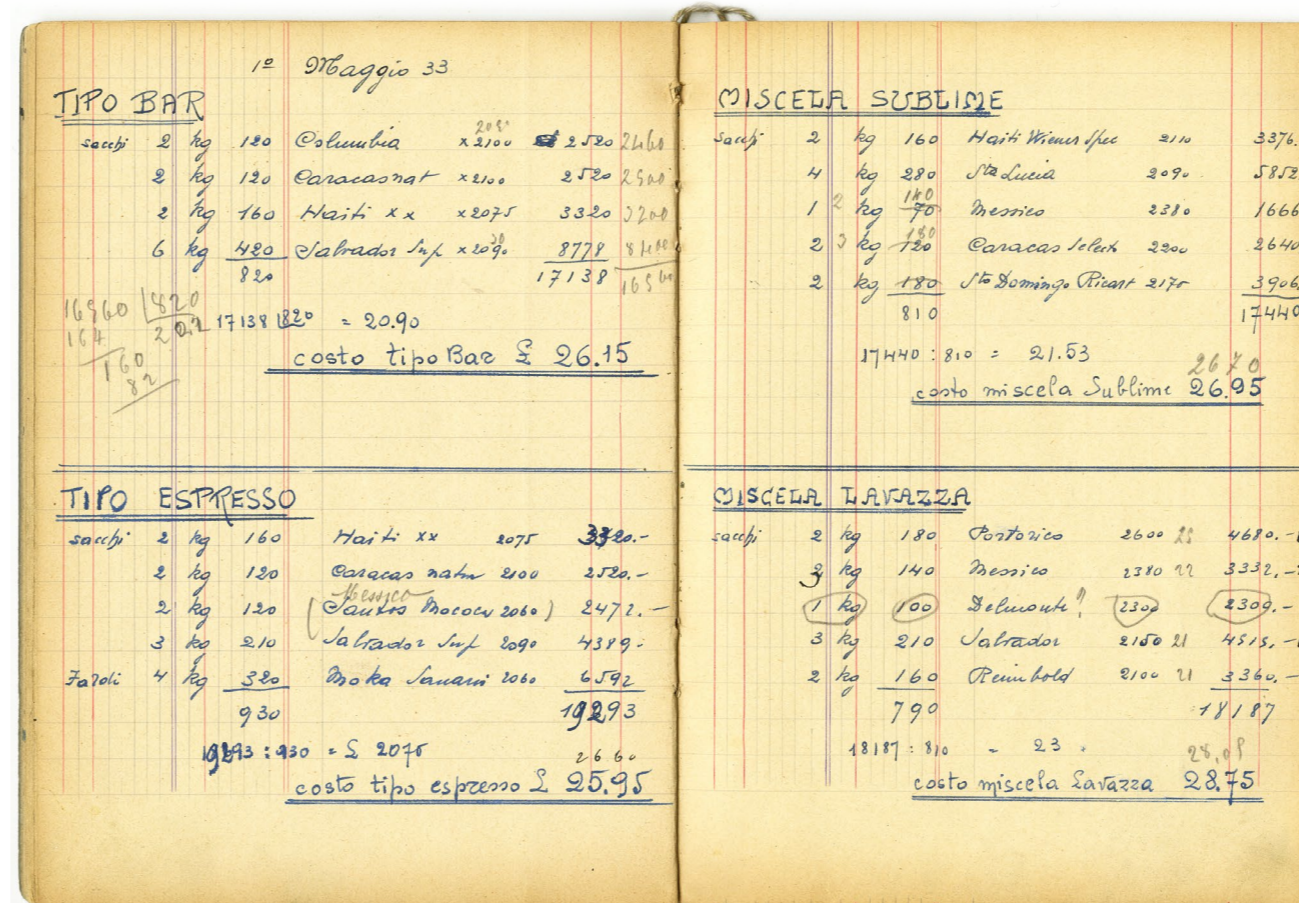 1º Maggio 33
TIPO BAR
sacchi 2 kg 120 Columbia x 2100 2520 2460
2 kg 120 Caracas nat x 2100 2520
2 kg 160 Haiti x x x 2075 3320 3200
6 kg 420 Salvador Sup x 2090 8778
820 17138
16960 820
164
160
82
17138 820 = 20.90
costo tipo Bar £ 26.15
TIPO ESPRESSO
sacchi 2 kg 160 Haiti xx 2075 3320.-
2 kg 120 Caracas natur 2100 2520.-
Messico
2 kg 120 (Santos 2060) 2472.-
3 kg 210 Salvador Sup 2090 4389-
Fardi 4 kg 320 Moka Sanani 2060 6592
930 19293
19293 : 930 = £ 2075
26 60
costo tipo espresso £ 25.95
MISCELA SUBLIME
sacchi 2 kg 160 Haiti Wiener Spec 2110 3376.
4 kg 280 Sta Lucia 2090 5852
140
1 2 kg 70 Messico 2380 1666
180
2 3 kg 120 Caracas Select 2200 2640
2 kg 180 Sto Domingo Ricart 2170 3906.
810 17440
17440 : 810 = 21.53
26 70
costo miscela Sublime 26.95
MISCELA LAVAZZA
sacchi 2 kg 180 Portorico 2600 4680.-
kg 140 Messico 2380 22 3332.-
1 kg 100 Delmonte? 2300 2300.-
3 kg 210 Salvador 2150 21 4515.-
2 kg 160 Reimbold 2100 21 3360.-
790 18187
18187 : 810 = 23
costo miscela Lavazza 28.75